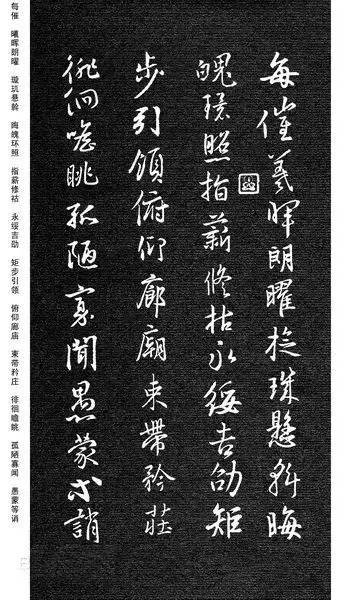 每催羲暉朗曜旋珠懸斡晦
魄環照指薪修祜永綏吉劭矩
步引領俯仰廊廟束帶矜莊
徘徊瞻眺孤陋寡聞愚蒙等誚
每催 曦晖朗曜 璇玑悬斡 晦魄环照 指薪修祜 永绥吉劭 矩步引领 俯仰廊庙 束带矜庄 徘徊瞻眺 孤陋寡闻 愚蒙等诮